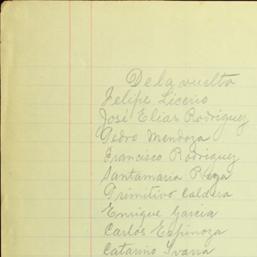 De la vuelto
Felipe Licerio
José Elias Rodriguez
Pedro Mendoza
Francisco Rodriguez
Santamaria
Primitivo Caldera
Enrique Garcia
Carlos Espinoza
Catarino